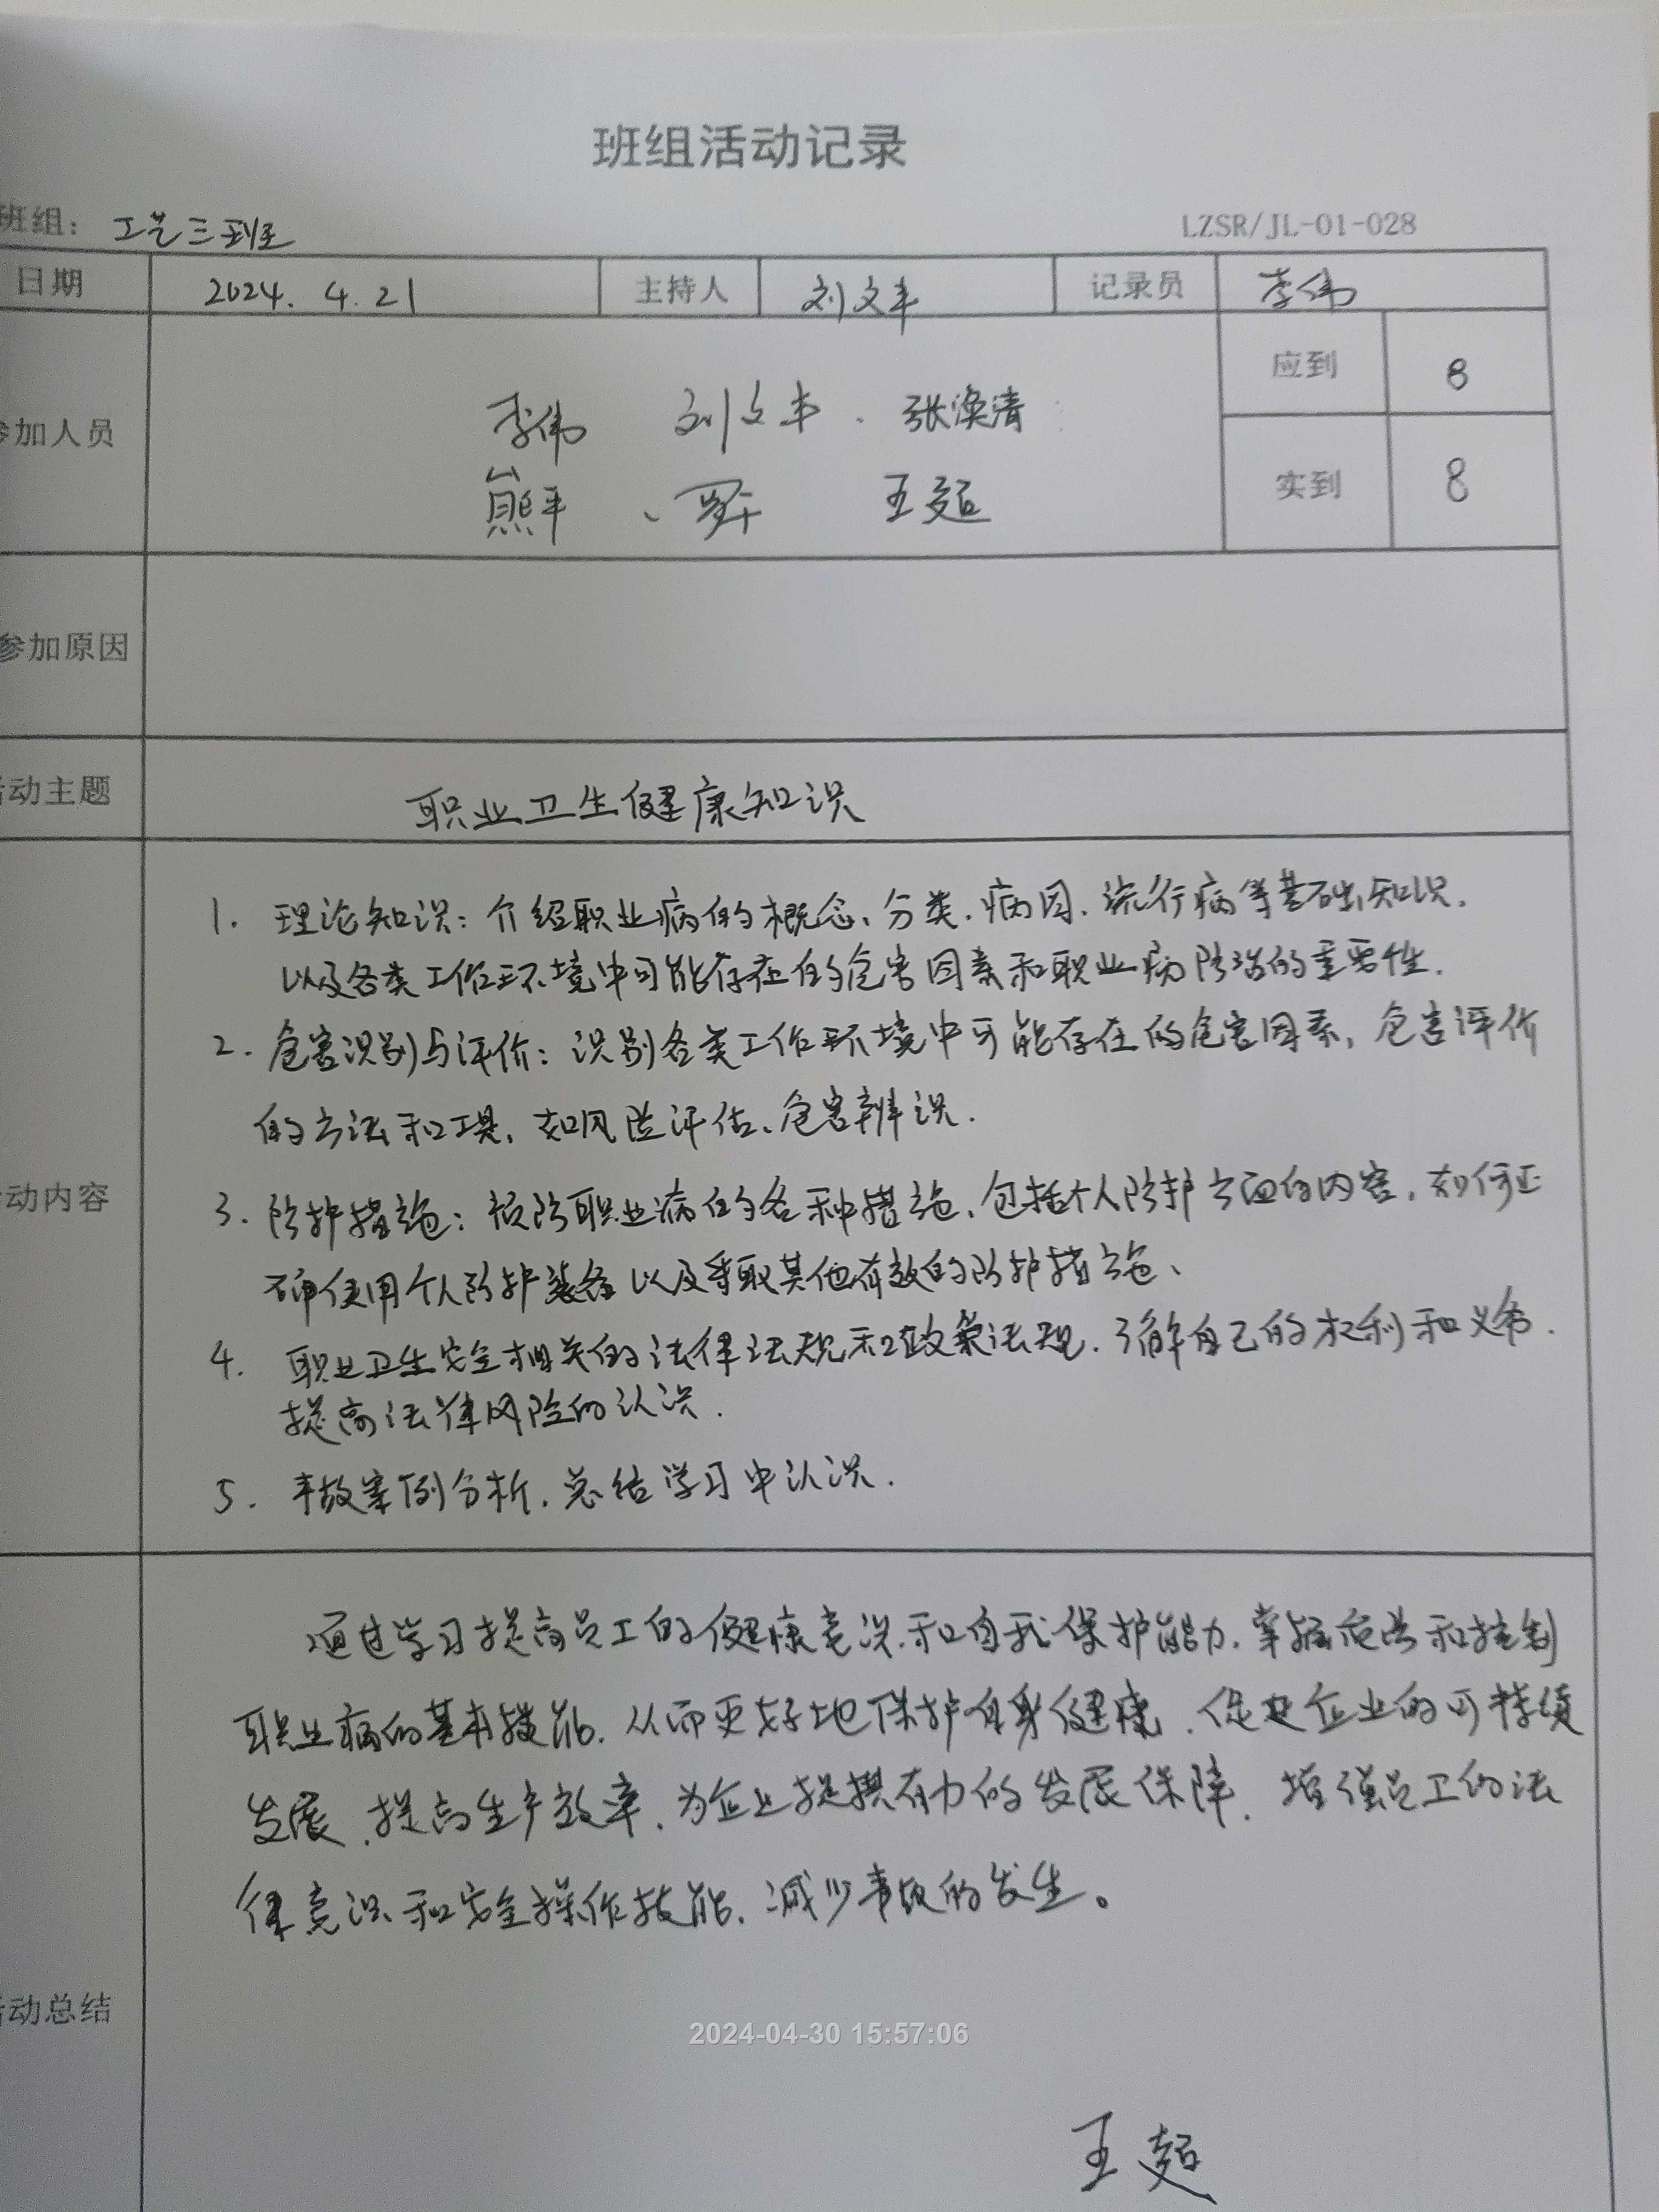 班组活动记录
班组: 工艺三班
LZSR/JL-01-028
日期 2024.4.21 主持人 刘文丰 记录员 李伟
应到 8
加人员 李伟 刘文丰 张涣清
熊平 王超
实到 8
参加原因
动主题 职业卫生健康知识
1. 理论知识: 介绍职业病的概念、分类、病因、流行病等基础知识.
以及各类工作环境中可能存在的危害因素和职业病防治的重要性.
2. 危害识别与评价: 识别各类工作环境中可能存在的危害因素, 危害评价
的方法和工具, 如风险评估、危害辨识.
动内容
3. 防护措施: 预防职业病的各种措施, 包括个人防护方面的内容, 如何正
确使用个人防护装备以及采取其他有效的防护措施、
4. 职业卫生安全相关的法律法规和政策法规, 了解自己的权利和义务.
提高法律风险的认识.
5. 事故案例分析, 总结学习中认识.
通过学习提高员工的健康意识和自我保护能力, 掌握应急和控制
职业病的基本技能, 从而更好地保护自身健康, 促进企业的可持续
发展, 提高生产效率, 为企业提供有力的发展保障, 增强员工的法
律意识和安全操作技能, 减少事故的发生。
动总结
2024-04-30 15:57:06
王超